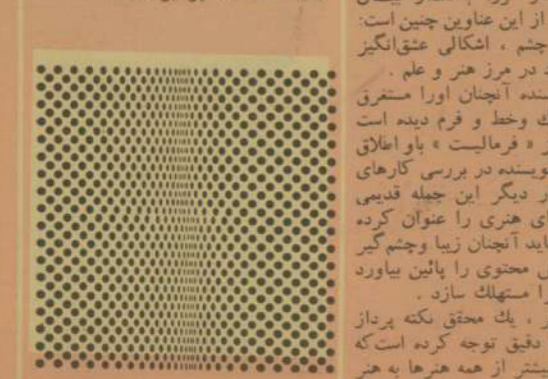 از این عناوین چنین است:
چشم ، اشکالی عشق‌انگیز
در مرز هنر و علم .
آنچنان اورا مستغرق
وخط و فرم دیده است
« فرمالیست » باو اطلاق
نویسنده در بررسی کارهای
دیگر این جمله قدیمی
هنری را عنوان کرده
آنچنان زیبا وچشم‌گیر
محتوی را پائین بیاورد
را مستهلك سازد .
، یك محقق نکته پرداز
دقیق توجه کرده است‌که
بیشتر از همه هنرها به هنر